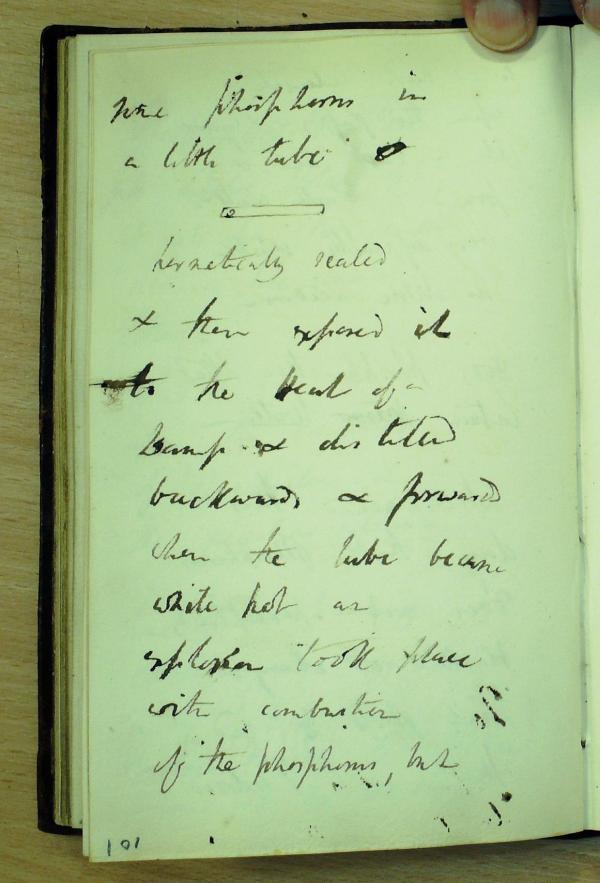 some phosphorus in
a little tube
hermetically sealed
& then exposed it
to the heat of a
Lamp & distilled
backwards & forwards
when the tube became
white hot an
explosion took place
with combustion
of the phosphorus, but
101